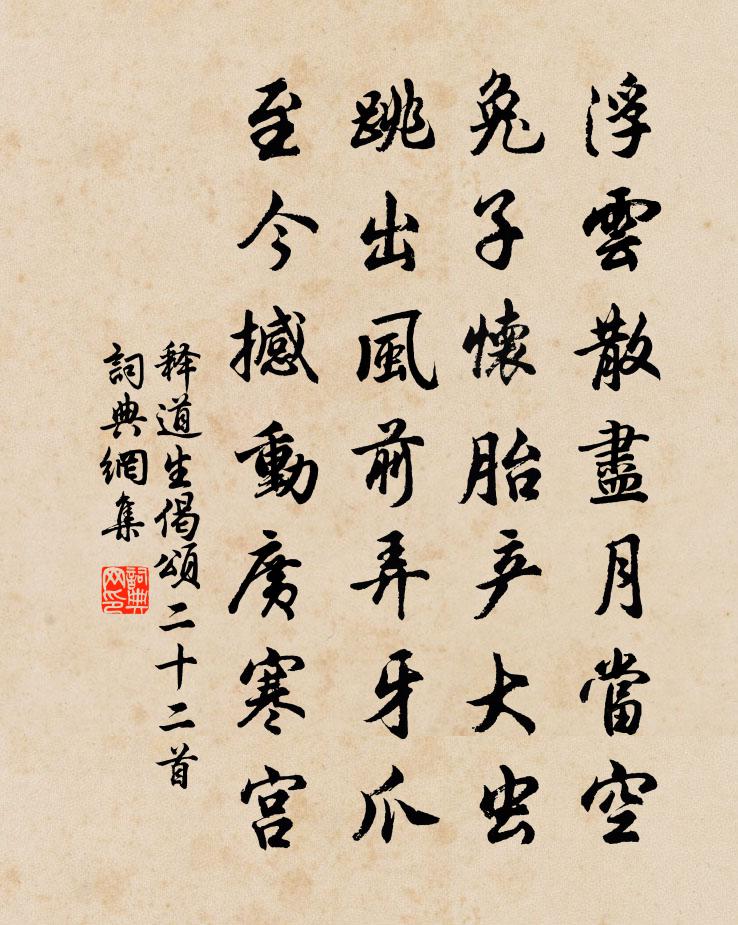 浮雲散盡月當空
兔子懷胎产大虫
跳出風前弄牙爪
至今撼動廣寒宮
释道生偈頌二十二首
詞典網集
詞典网印